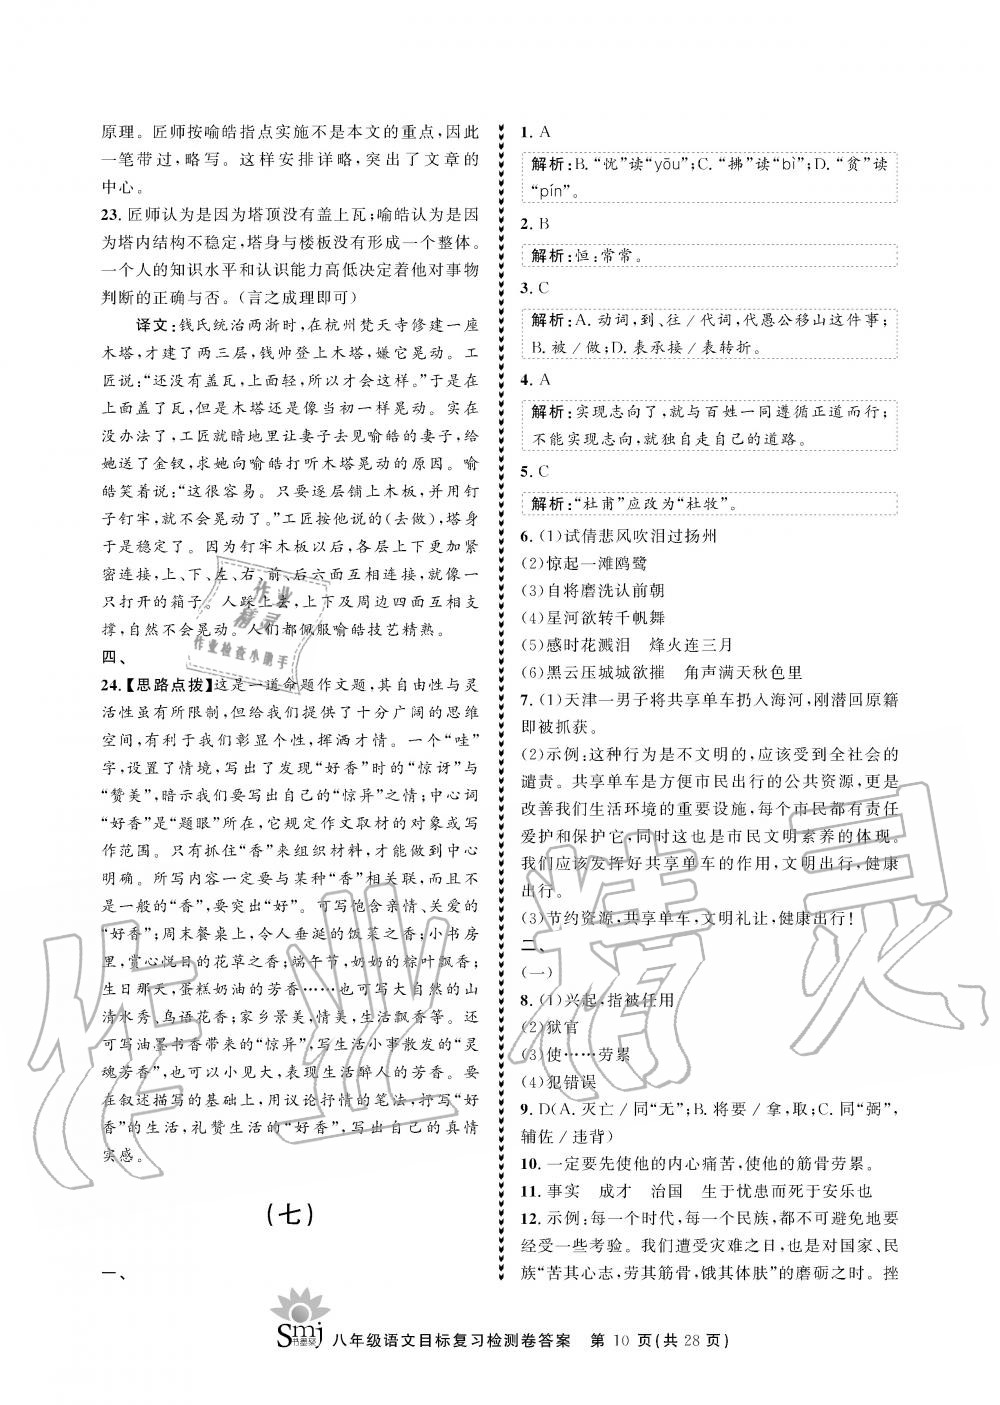 原理。匠师按喻皓指点实施不是本文的重点,因此
一笔带过,略写。这样安排详略,突出了文章的
中心。
23. 匠师认为是因为塔顶没有盖上瓦;喻皓认为是因
为塔内结构不稳定,塔身与楼板没有形成一个整体。
一个人的知识水平和认识能力高低决定着他对事物
判断的正确与否。(言之成理即可)
译文:钱氏统治两浙时,在杭州梵天寺修建一座
木塔,才建了两三层,钱帅登上木塔,嫌它晃动。工
匠说:“还没有盖瓦,上面轻,所以才会这样。”于是在
上面盖了瓦,但是木塔还是像当初一样晃动。实在
没办法了,工匠就暗地里让妻子去见喻皓的妻子,给
她送了金钗,求她向喻皓打听木塔晃动的原因。喻
皓笑着说:“这很容易。只要逐层铺上木板,并用钉
子钉牢,就不会晃动了。”工匠按他说的(去做),塔身
于是稳定了。因为钉牢木板以后,各层上下更加紧
密连接,上、下、左、右、前、后六面互相连接,就像一
只打开的箱子。人踩上去,上下及周边四面互相支
撑,自然不会晃动。人们都佩服喻皓技艺精熟。
四、
24.【思路点拨】这是一道命题作文题,其自由性与灵
活性虽有所限制,但给我们提供了十分广阔的思维
空间,有利于我们彰显个性,挥洒才情。一个“哇”
字,设置了情境,写出了发现“好香”时的“惊讶”与
“赞美”,暗示我们要写出自己的“惊异”之情;中心词
“好香”是“题眼”所在,它规定作文取材的对象或写
作范围。只有抓住“香”来组织材料,才能做到中心
明确。所写内容一定要与某种“香”相关联,而且不
是一般的“香”,要突出“好”。可写饱含亲情、关爱的
“好香”;周末餐桌上,令人垂涎的饭菜之香;小书房
里,赏心悦目的花草之香;端午节,奶奶的粽叶飘香;
生日那天,蛋糕奶油的芳香……也可写大自然的山
清水秀、鸟语花香;家乡景美,情美,生活飘香等。还
可写油墨书香带来的“惊异”,写生活小事散发的“灵
魂芳香”,也可以小见大,表现生活醉人的芳香。要
在叙述描写的基础上,用议论抒情的笔法,抒写“好
香”的生活,礼赞生活的“好香”,写出自己的真情
实感。
(七)
一、
1. A
解析:B.“忧”读“yōu”;C.“拂”读“bì”;D.“贫”读
“pín”。
2. B
解析:恒:常常。
3. C
解析:A. 动词,到、往/代词,代愚公移山这件事;
B. 被/做;D. 表承接/表转折。
4. A
解析:实现志向了,就与百姓一同遵循正道而行;
不能实现志向,就独自走自己的道路。
5. C
解析:“杜甫”应改为“杜牧”。
6. (1)试倩悲风吹泪过扬州
(2)惊起一滩鸥鹭
(3)自将磨洗认前朝
(4)星河欲转千帆舞
(5)感时花溅泪 烽火连三月
(6)黑云压城城欲摧 角声满天秋色里
7. (1)天津一男子将共享单车扔入海河,刚潜回原籍
即被抓获。
(2)示例:这种行为是不文明的,应该受到全社会的
谴责。共享单车是方便市民出行的公共资源,更是
改善我们生活环境的重要设施,每个市民都有责任
爱护和保护它,同时这也是市民文明素养的体现。
我们应该发挥好共享单车的作用,文明出行,健康
出行。
(3)节约资源,共享单车,文明礼让,健康出行!
二、
(一)
8. (1)兴起,指被任用
(2)狱官
(3)使……劳累
(4)犯错误
9. D(A. 灭亡/同“无”;B. 将要/拿,取;C. 同“弼”,
辅佐/违背)
10. 一定要先使他的内心痛苦,使他的筋骨劳累。
11. 事实 成才 治国 生于忧患而死于安乐也
12. 示例:每一个时代,每一个民族,都不可避免地要
经受一些考验。我们遭受灾难之日,也是对国家、民
族“苦其心志,劳其筋骨,饿其体肤”的磨砺之时。挫
Smj
书墨染
八年级语文目标复习检测卷答案 第 10 页(共 28 页)
作业
精灵
作业检查小助手
作业精灵